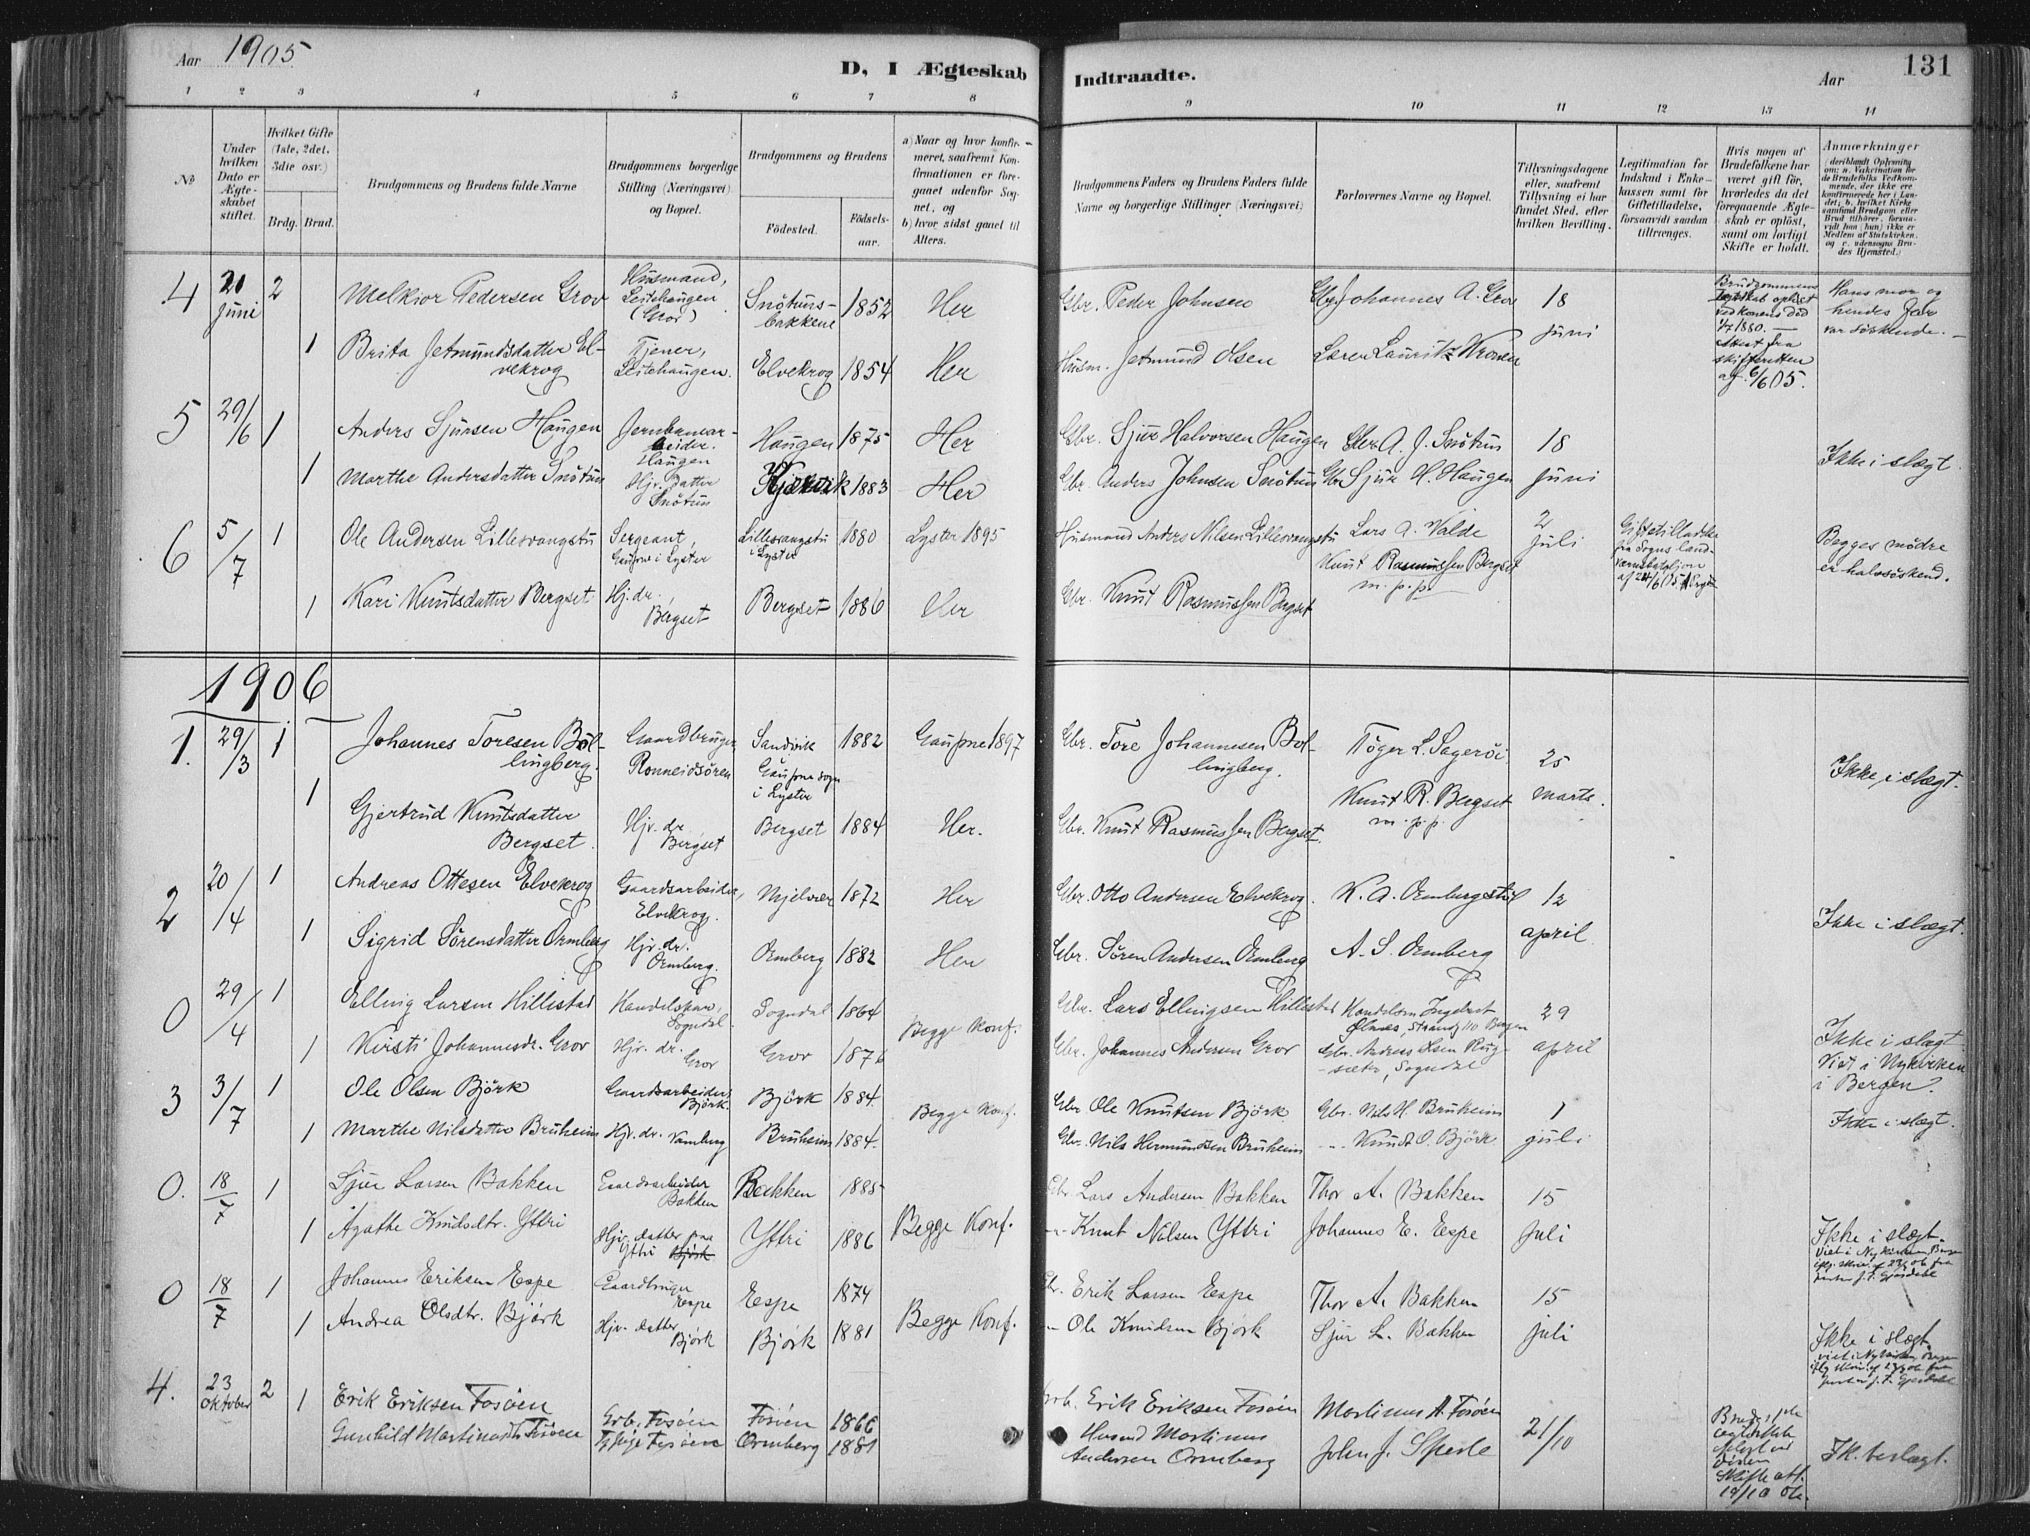 Aar 1905
D, I Ægteskab
Indtraadte.
Aar
131
1 2 3 4 5 6 7 8 9 10 11 12 13 14
No
Under hvilken Dato er Ægteskabet stiftet.
Hvilket Gifte (1ste, 2det, 3die osv.)
Brdg. Brud.
Brudgommens og Brudens fulde Navne
Brudgommens borgerlige Stilling (Næringsvei) og Bopæl.
Brudgommens og Brudens
Fødested.
Fødselsaar.
a) Naar og hvor konfirmeret, saafremt Konfirmationen er foregaaet udenfor Sognet, og
b) hvor sidst gaaet til Alters.
Brudgommens Faders og Brudens Faders fulde Navne og borgerlige Stillinger (Næringsvei)
Forlovernes Navne og Bopæl.
Tillysningsdagene eller, saafremt Tillysning ei har fundet Sted, efter hvilken Bevilling.
Legitimation for Indskud i Enkekassen samt for Giftetilladelse, forsaavidt saadan tiltrænges.
Hvis nogen af Brudefolkene har været gift før, hvorledes da det foregaaende Ægteskab er opløst, samt om lovligt Skifte er holdt.
Anmærkninger
(deriblandt Oplysning om: a. Vakcination for de Brudefolks Vedkommende, der ikke ere konfirmerede her i Landet; b. hvilket Kirkesamfund Brudgom eller Brud tilhører, forsaavidt han (hun) ikke er Medlem af Statskirken, og c. udensogns Brudes Hjemsted.)
4 21 Juni 2 Melkior Pedersen Grov Husmand, Leitehaugen (Grov) Snötunsbakkene 1852 Her Gbr. Peder Johnsen Gbr Johannes A. Grov 18 juni
Brudgommens Ægteskab opløst ved konens død 1880. — Attest fra skifteretten af 6/6 05.
Hans mor og hendes far var søskende. —
1 Brita Jetmundsdatter Elvekrog Tjener, Leitehaugen. Elvekrog 1854 Her Husm. Jetmund Olsen Lærer Lauritz Kronen
5 29/6 1 Anders Sjursen Haugen Jernbanearbeider. Haugen Haugen 1875 Her Gbr. Sjur Halvorsen Haugen Gbr A. J. Snötun 18 juni Ikke i slægt.
1 Marthe Andersdatter Snötun Hjv. datter Snötun 1883 Her Gbr. Anders Johnsen Snötun Gbr Sjur H. Haugen
6 5/7 1 Ole Andersen Lillesvangstu Sergeant, Gaupne i Lyster Lillesvangstu i Lyster 1880 Lyster 1895 Husmand Anders Nilsen Lillesvangstu Lars A. Valde 2 juli Giftetilladelse fra Sogns landværnsbataljon af 24/6 05
Begges mødre er halvsøskend.
1 Kari Knutsdatter Bergset Hj. dr. Bergset Bergset 1886 Her Gbr. Knut Rasmussen Bergset Knut Rasmussen Bergset m. p. p.
1906
1. 29/3 1 Johannes Toresen Bollingberg. Gaardbruger Ronneidsören Sandvik Gaupne sogn i Lyster 1882 Gaupne 1897 Gbr. Tore Johannesen Bollingberg. Töger L. Sageröi 25 marts. Ikke i slægt.
1 Gjertrud Knutsdatter Bergset. Hjv. dr. Bergset Bergset 1884 Her. Gbr. Knut Rasmussen Bergset. Knut R. Bergset m. p. p.
2 20/4 1 Andreas Ottesen Elvekrog Gaardsarbeider, Elvekrog. Mjelvær 1872 Her Gbr. Otto Andersen Elvekrog. K. A. Ormbergstöl 12 april Ikke i slægt.
1 Sigrid Sörensdatter Ormberg Hjv. dr. Ormberg. Ormberg 1882 Her Gbr. Sören Andersen Ormberg A. S. Ormberg
0 29/4 1 Elling Larsen Hillestad Handelskar, Sogndal. Sogndal 1864 Begge Konf. Gbr. Lars Ellingsen Hillestad Handelsm. Ingebret Ølnes, Strandg 110 Bergen 29 april Ikke i slægt. Viet i Nykirken i Bergen.
1 Kirsti Johannesdr. Grov Hjv. dr. Grov Grov 1876 Gbr. Johannes Andersen Grov Gbr. Andreas Olsen Rugsæter, Sogndal
3 3/7 1 Ole Olsen Björk Gaardsarbeider, Björk. Björk 1884 Begge Konf. Gbr Ole Knutsen Björk Gbr. Nils H. Bruheim 1 juli Ikke i slægt.
1 Marthe Nilsdatter Bruheim Hjv. dr. Bruheim 1884. Gbr. Nils Hermundsen Bruheim -- Knud O. Björk
0. 18/7 1 Sjur Larsen Bakken Gaardsarbeider Bakken Bakken 1885 Begge Konf. Gbr Lars Andersen Bakken Thor A. Bakken 15 juli Ikke i slægt. Viet i Nykirken, Bergen
1 Agathe Knudsdtr. Yttri Hjv. datter paa Yttri Björk Yttri 1886 -- Knut Nilsen Yttri Johannes E. Espe
0 18/7 1 Johannes Eriksen Espe Gaardbruger Espe Espe 1874 Begge Konf. Gbr. Erik Larsen Espe Thor A. Bakken 15 juli Ikke i slægt. viet i Nykirken, Bergen
1 Andrea Olsdtr. Björk Hjv. datter Björk Björk 1881 -- Ole Knudsen Björk Sjur L. Bakken
4. 23 Oktober 2 1 Erik Eriksen Fosöen Grb. Fosöen Fosöen 1866 Grb. Erik Eriksen Fosöen Martinus A. Fosöen 21/10 Ik. beslægt.
Gunhild Martinusdtr Fosöen Fosöen Ormberg 1881 Husmd Martinus Andersen Ormberg John J. Sperle